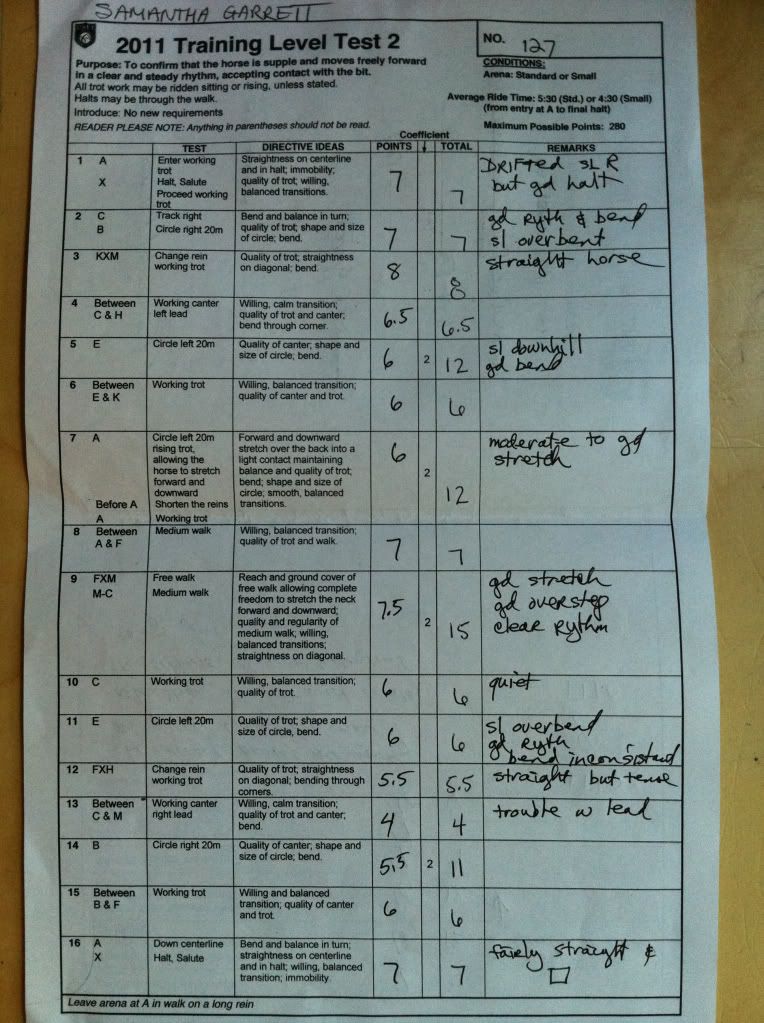 SAMANTHA GARRETT
2011 Training Level Test 2
NO. 127
Purpose: To confirm that the horse is supple and moves freely forward
in a clear and steady rhythm, accepting contact with the bit.
All trot work may be ridden sitting or rising, unless stated.
Halts may be through the walk.
Introduce: No new requirements
READER PLEASE NOTE: Anything in parentheses should not be read.
CONDITIONS:
Arena: Standard or Small
Average Ride Time: 5:30 (Std.) or 4:30 (Small)
(from entry at A to final halt)
Maximum Possible Points: 280
Coefficient
TEST DIRECTIVE IDEAS POINTS ↓ TOTAL REMARKS
1 A Enter working
trot
X Halt, Salute
Proceed working
trot
Straightness on centerline
and in halt; immobility;
quality of trot; willing,
balanced transitions.
7 7
DRIFTed SL R
but gd halt
2 C Track right
B Circle right 20m
Bend and balance in turn;
quality of trot; shape and size
of circle; bend.
7 7
gd Ryth & bend
sl overbent
3 KXM Change rein
working trot
Quality of trot; straightness
on diagonal; bend.
8 8
straight horse
4 Between
C & H
Working canter
left lead
Willing, calm transition;
quality of trot and canter;
bend through corner.
6.5 6.5
5 E Circle left 20m
Quality of canter; shape and
size of circle; bend.
6 2 12
sl downhill
gd bend
6 Between
E & K
Working trot
Willing, balanced transition;
quality of canter and trot.
6 6
7 A Circle left 20m
rising trot,
allowing the
horse to stretch
forward and
downward
Before A Shorten the reins
A Working trot
Forward and downward
stretch over the back into a
light contact maintaining
balance and quality of trot;
bend; shape and size of
circle; smooth, balanced
transitions.
6 2 12
moderate to gd
stretch
8 Between
A & F
Medium walk
Willing, balanced transition;
quality of trot and walk.
7 7
9 FXM Free walk
M-C Medium walk
Reach and ground cover of
free walk allowing complete
freedom to stretch the neck
forward and downward;
quality and regularity of
medium walk; willing,
balanced transitions;
straightness on diagonal.
7.5 2 15
gd stretch
gd overstep
clear Rythm
10 C Working trot
Willing, balanced transition;
quality of trot.
6 6
quiet
11 E Circle left 20m
Quality of trot; shape and
size of circle, bend.
6 6
sl overbend
gd Ryth
bend inconsistant
12 FXH Change rein
working trot
Quality of trot; straightness
on diagonal; bending through
corners.
5.5 5.5
straight but tense
13 Between
C & M
Working canter
right lead
Willing, calm transition;
quality of trot and canter;
bend.
4 4
trouble w lead
14 B Circle right 20m
Quality of canter; shape and
size of circle; bend.
5.5 2 11
15 Between
B & F
Working trot
Willing and balanced
transition; quality of canter
and trot.
6 6
16 A Down centerline
X Halt, Salute
Bend and balance in turn;
straightness on centerline
and in halt; willing, balanced
transition; immobility.
7 7
fairly straight &
□
Leave arena at A in walk on a long rein